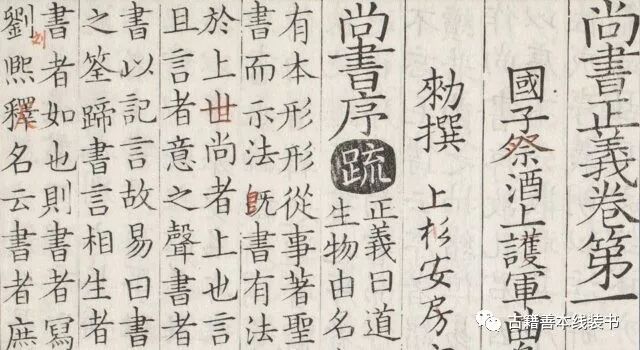 尚書正義卷第一
國子祭酒上護軍曲
勑撰 上杉安房
尚書序 疏 正義曰道
生物由名
有本形形從事著聖
書而示法既書有法
於上世尚者上也言
且言者意之聲書者
書以記言故易曰書
之筌蹄書言相生者
書者如也則書者寫
劉熙釋名云書者庶
古籍善本线装书